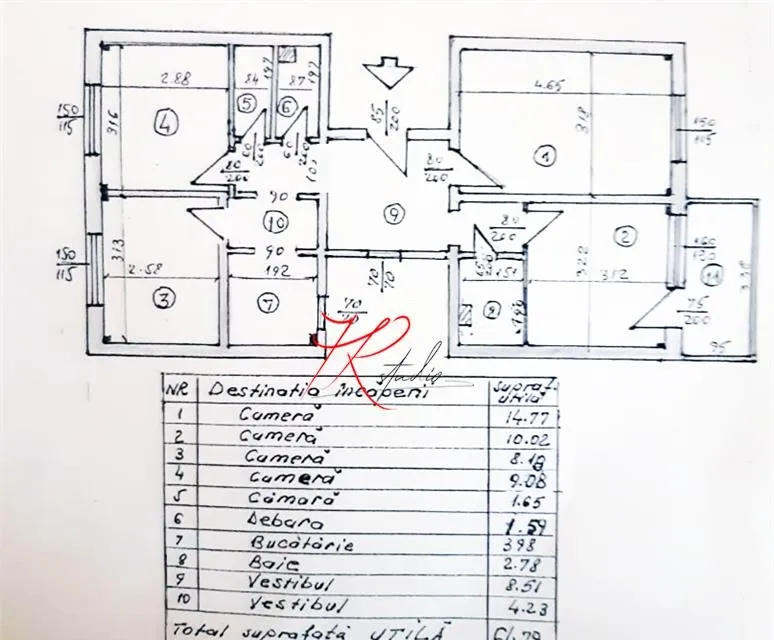 2.88
84
197
87
197
4.65
150
115
316
4
5
6
85
200
318
150
115
1
80
200
60
200
60
200
80
200
90
10
9
80
200
2
160
120
11
338
150
115
313
2.58
3
90
192
7
70
70
70
65
200
151
8
322
312
75
200
95
KR studio
NR Destinația încăperii supraf. utilă
1 Cameră 14.77
2 Cameră 10.02
3 Cameră 8.18
4 Cameră 9.08
5 Cămară 1.65
6 Debara 1.59
7 Bucătărie 3.98
8 Baie 2.78
9 Vestibul 8.51
10 Vestibul 4.23
Total suprafață UTILĂ 61.79